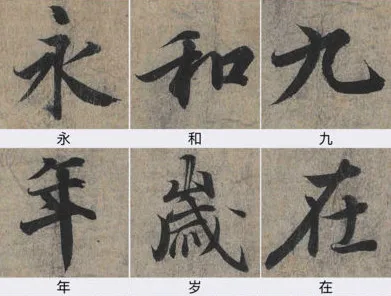 永和九
永 和 九
年歲在
年 岁 在